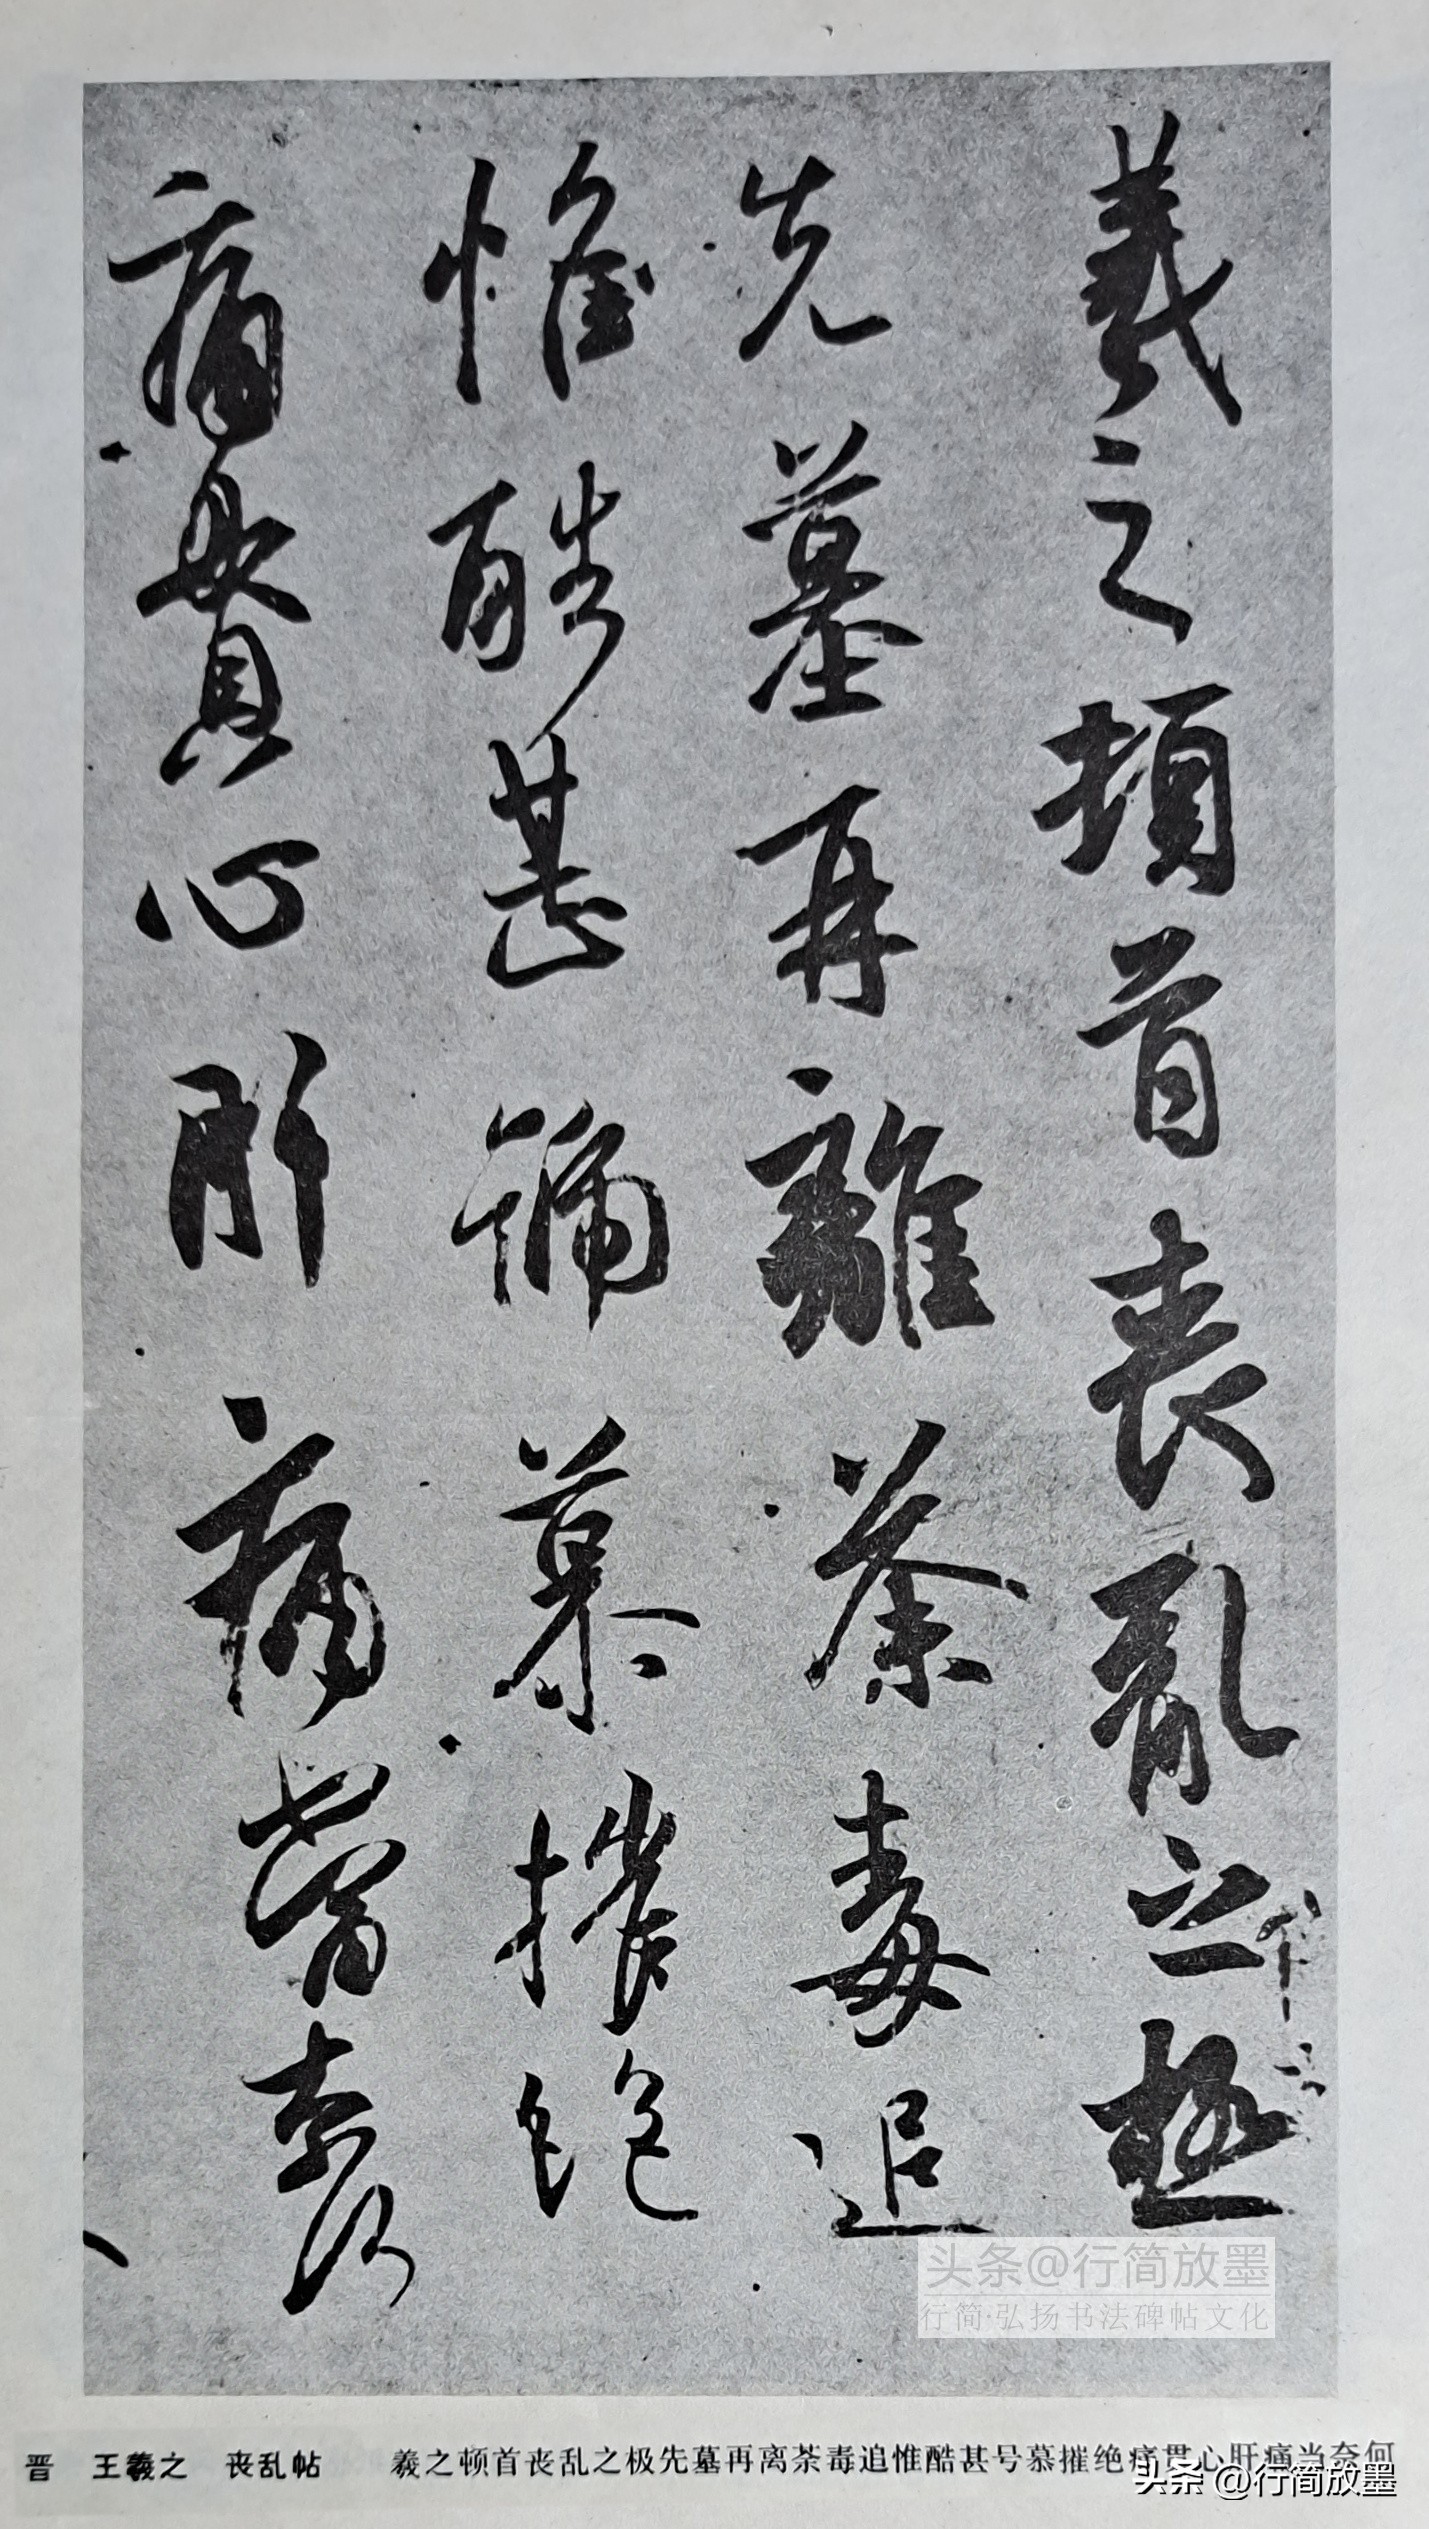 羲之頓首喪亂之極
先墓再離荼毒追
惟酷甚號慕摧絕
痛貫心肝痛當奈何
头条@行简放墨
行简·弘扬书法碑帖文化
晋 王羲之 丧乱帖 羲之顿首丧乱之极先墓再离荼毒追惟酷甚号慕摧绝痛贯心肝痛当奈何
头条 @行简放墨